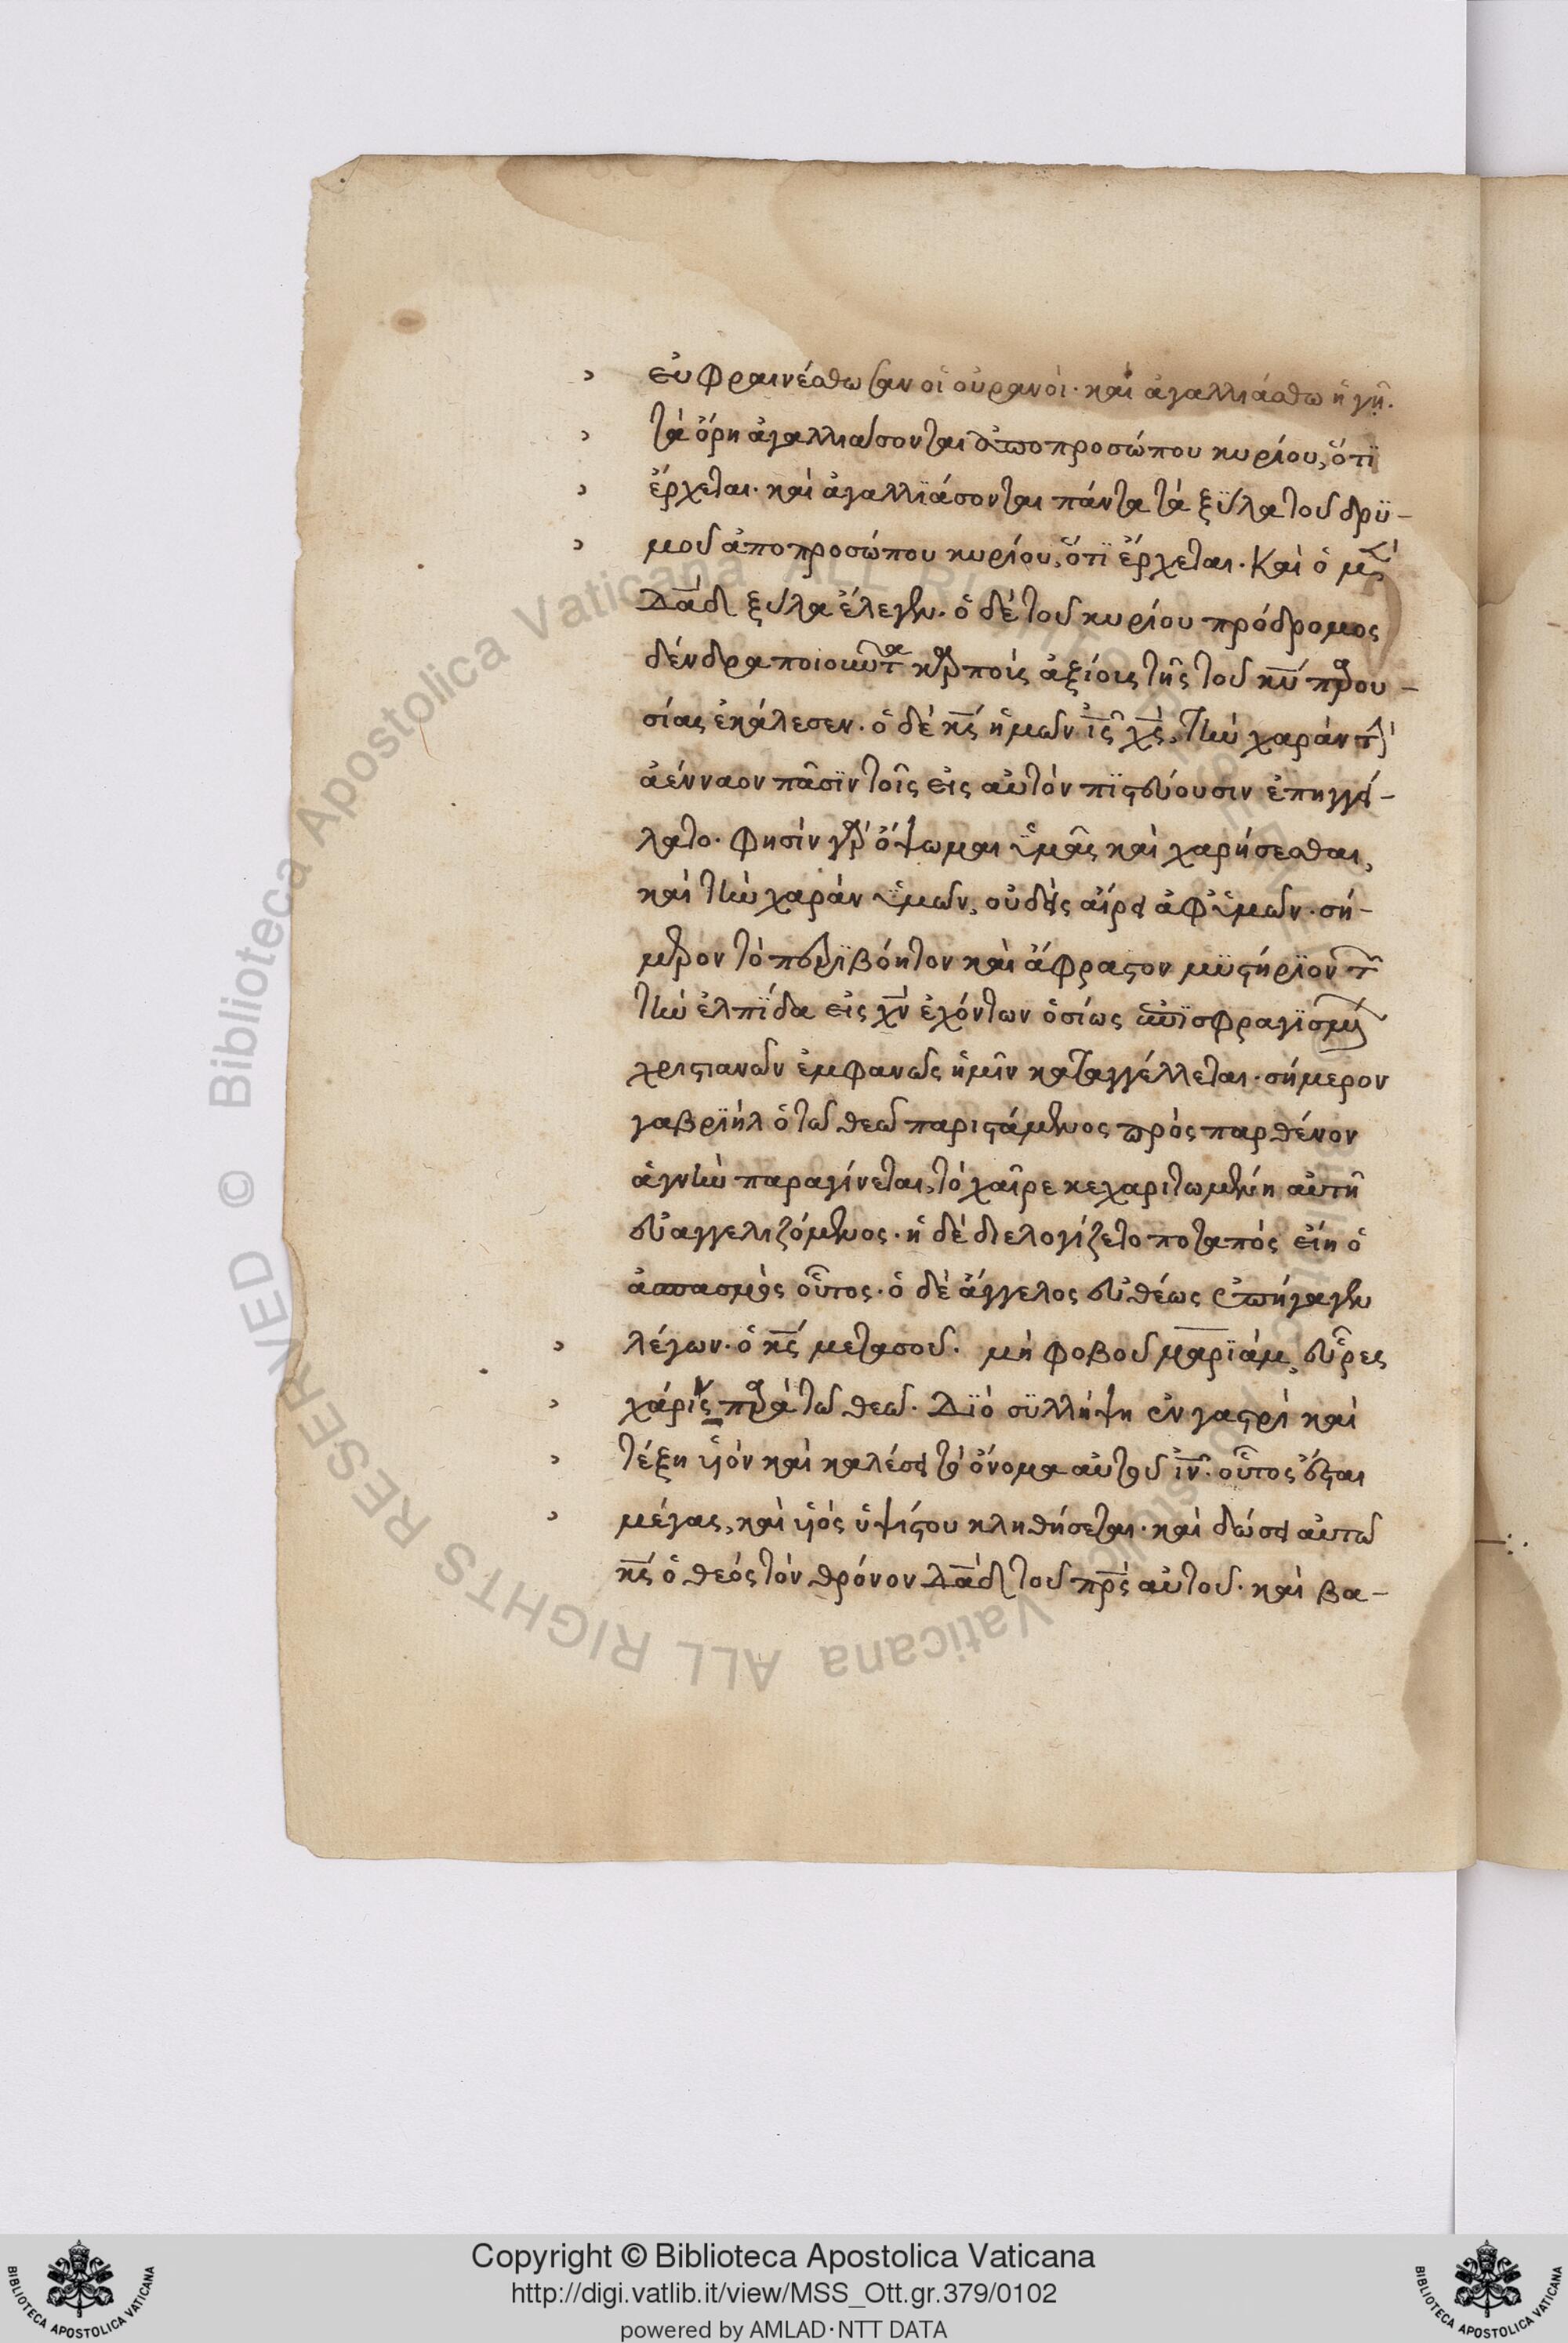 εὐφραινέσθωσαν οἱ οὐρανοὶ· καὶ ἀγαλλιάσθω ἡ γῆ.
τὰ ὄρη ἀγαλλιάσονται ἀπο προσώπου κυρίου, ὅτϊ
ἔρχεται· καὶ ἀγαλλϊάσονται πάντα τὰ ξῢλα τοῦ δρϋ-
μοῦ ἀπο προσώπου κυρίου, ὅτϊ ἔρχεται. Καὶ ὁ μὲν
δα̅δ ξύλα ἔλεγεν. ὁ δὲ τοῦ κυρίου πρόδρομος
δένδρα ποιοῦντα καρποὺς ἀξίους τῆς τοῦ κ̅υ̅ παρου-
σίας ἐκάλεσεν. ὁ δὲ κ̅ς̅ ἡμῶν ι̅ς̅ χ̅ς̅, τὴν χαρὰν τὴν
ἀένναον πᾶσϊν τοῖς εἰς αὐτὸν πϊστεύουσιν ἐπηγγεί-
λατο. φησὶν γὰρ ὄψωμαι ϋμᾶς καὶ χαρήσεσθαι,
καὶ τὴν χαρὰν ϋμῶν, οὐδεὶς αἴρει ἀφ ϋμῶν. σή-
μερον τὸ περϊβόητον καὶ ἄφραστον μϋστήρϊον τῶν
τὴν ἐλπΐδα εἰς χ̅ν̅ ἐχόντων ὁσίως σφραγϊσμ
χριστιανῶν ἐμφανῶς ἡμῖν καταγγέλλεται. σήμερον
γαβρϊὴλ ὁ τῶ θεῶ παριστάμενος πρὸς παρθένον
ἁγνὴν παραγίνεται, τὸ χαῖρε κεχαριτωμένη αὐτῆ
εὐαγγελιζόμενος. ἡ δὲ διελογίζετο ποταπὸς εἴη ὁ
ἀσπασμὸς οὗτος. ὁ δὲ ἄγγελος εὐθέως ἐπήγαγεν
λέγων. ὁ κ̅ς̅ μετασοῦ. μὴ φοβοῦ μαρϊὰμ, εὗρες
χάριν παρὰ τῶ θεῶ. Δϊὸ σϋλλήψη ἐν γαστρὶ καὶ
τέξη υἱόν καὶ καλέσει τὸ ὄνομα αὐτοῦ ι̅ν̅. οὗτος ἔσται
μέγας, καὶ υἱὸς ὑψίστου κληθήσεται. καὶ δώσει αὐτῶ
κ̅ς̅ ὁ θεός τὸν θρόνον δα̅δ τοῦ π̅ρ̅ς̅ αὐτοῦ. καὶ βα-
Copyright © Biblioteca Apostolica Vaticana
http://digi.vatlib.it/view/MSS_Ott.gr.379/0102
powered by AMLAD·NTT DATA
BIBLIOTECA APOSTOLICA VATICANA
BIBLIOTECA APOSTOLICA VATICANA
© Biblioteca Apostolica Vaticana ALL RIGHTS RESERVED